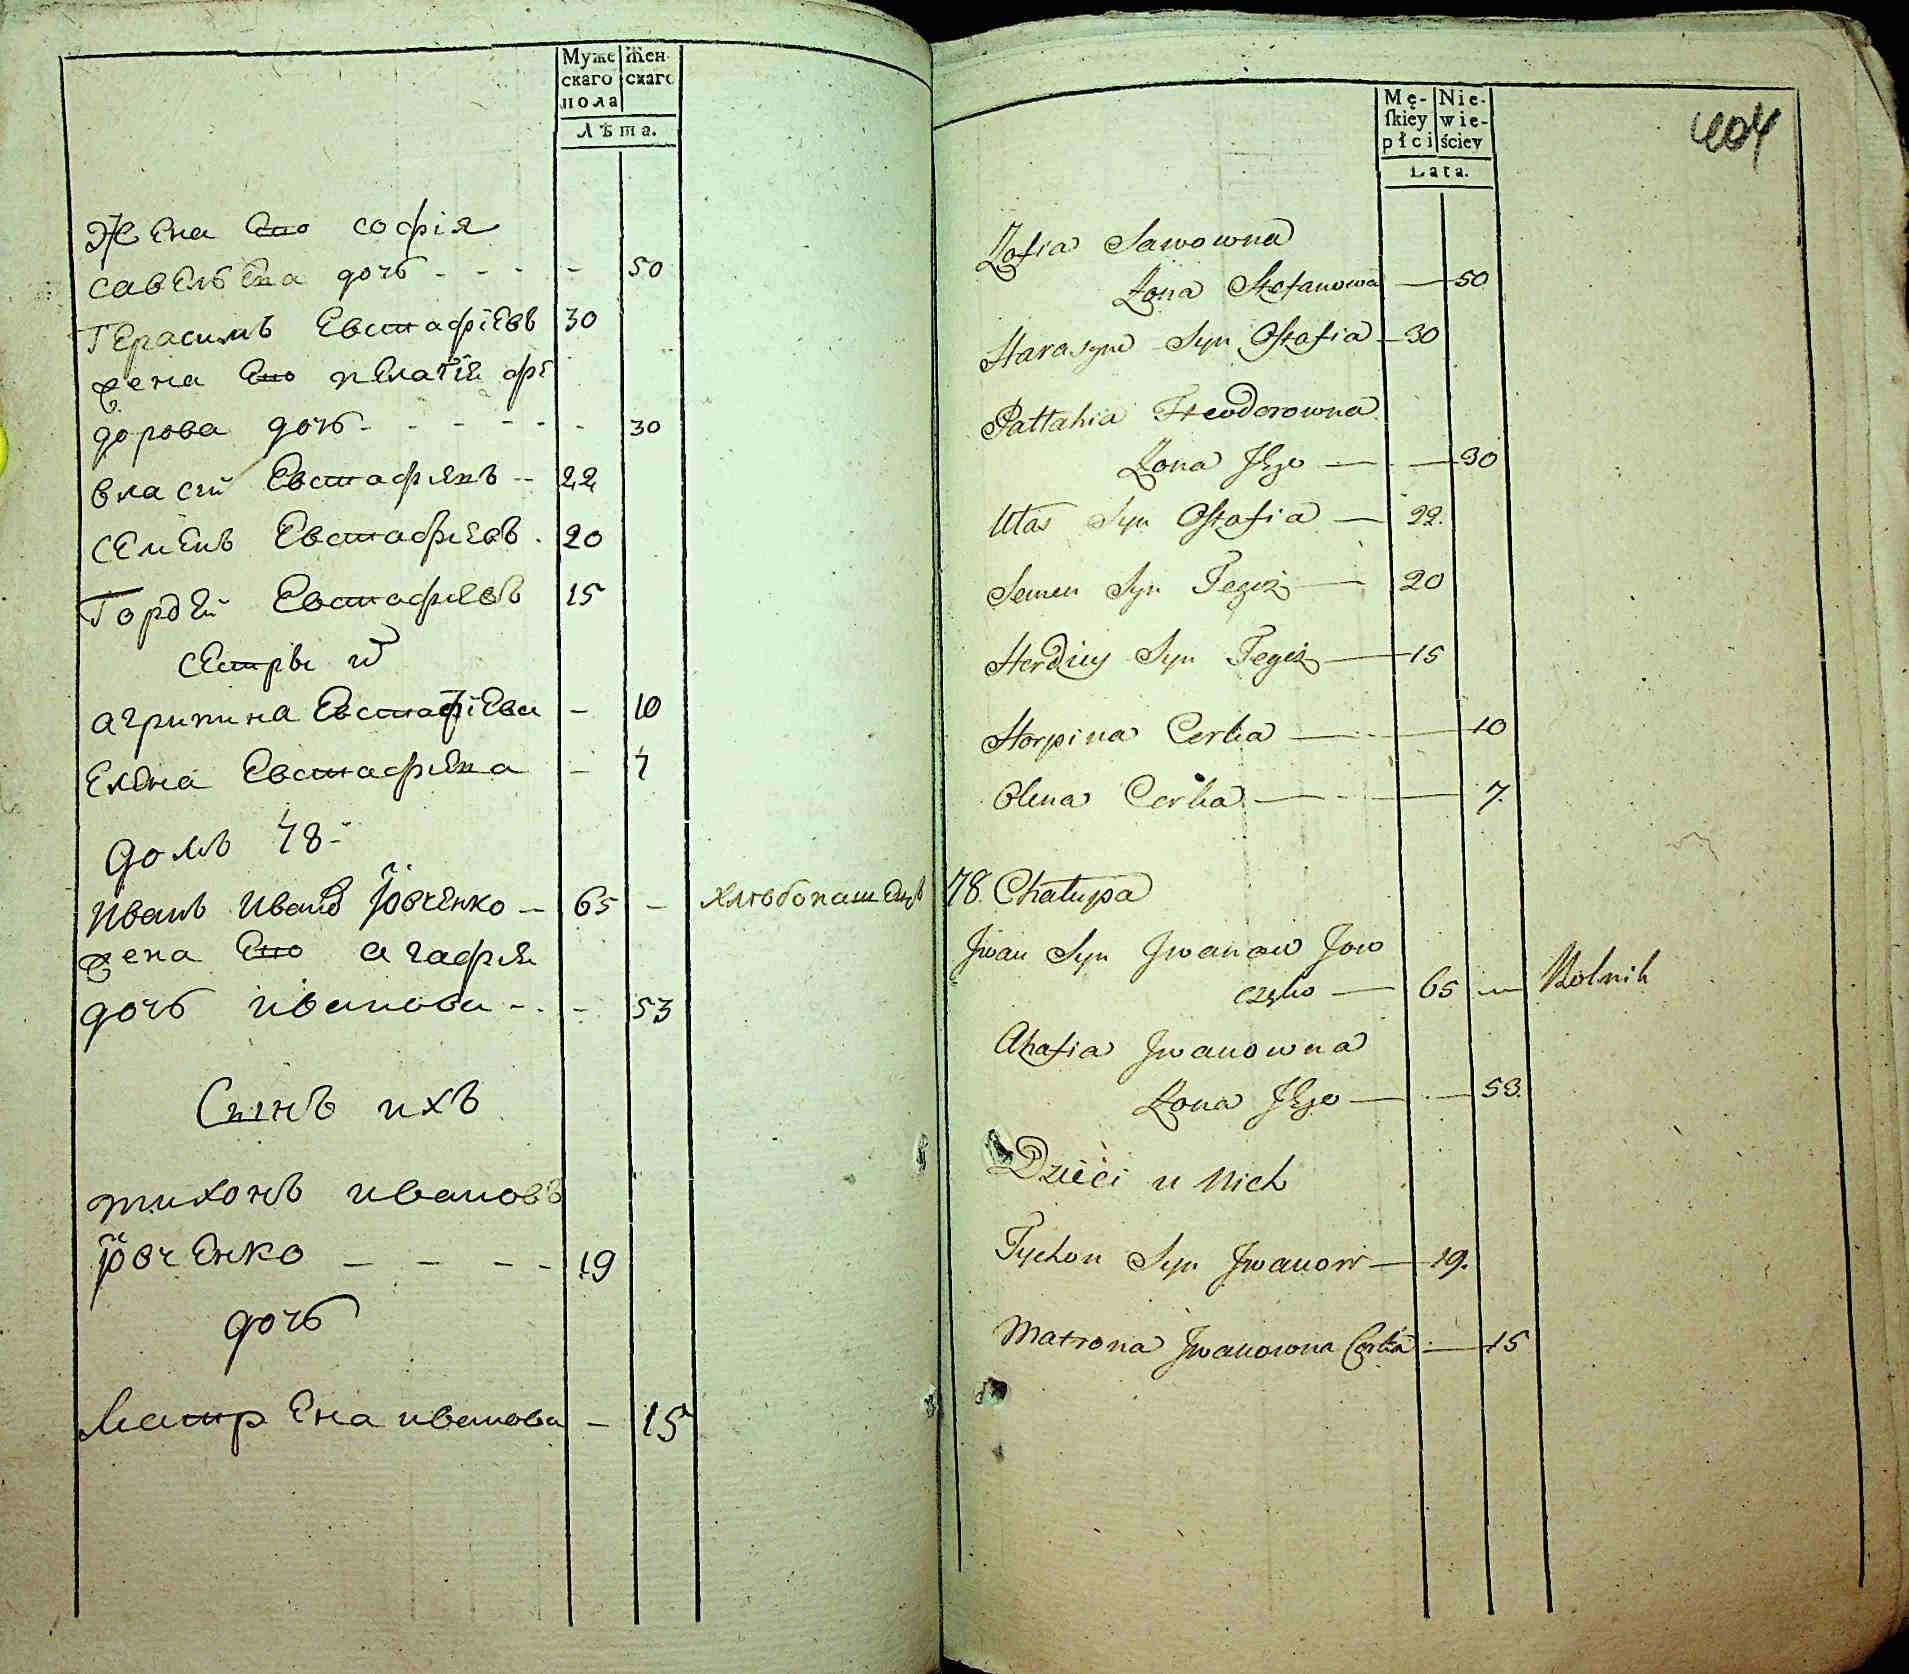 Муже Жен
скаго скаго
пола
Лѣта.
Жена Его софія
савельева дочь - - - - 50
Герасимъ Евстафіевъ 30
жена Его пелагія фе
дорова дочь - - - - - - 30
власій Евстафиевъ - - 22
Семенъ Евстафиевъ - 20
Гордѣй Евстафиевъ 15
сестры их
агрипина Евстафіева - 10
Елена Евстафиева - 7
домъ 78-й
Иванъ Ивановъ Іовченко - 65 - хлѣбопашецъ
жена Его агафия
дочь иванова - - - 53
Сынъ ихъ
тихонъ ивановъ
Іовченко - - - - 19
дочь
Матрена иванова - 15
Mę- Nie-
ſkiey wie-
płci ściey
Lata.
404
Zofia Sawowna
Żona Stefanowa — 50
Harasym Syn Ostafia — 30
Pallahia Fteodorowna
Żona Jego — — 30
Ułas Syn Ostafia — 22.
Semen Syn Tegoż — 20
Herdiey Syn Tegoż — 15
Horpina Corka — — 10
Olena Corka — — 7.
78. Chałupa
Jwan Syn Jwanow Jow
częko — 65 — Rolnik
Ahafia Jwanowna
Żona Jego — — 53.
Dzieci u Nich
Tychon Syn Jwanow — 19.
Matrona Jwanowna Corka — 15